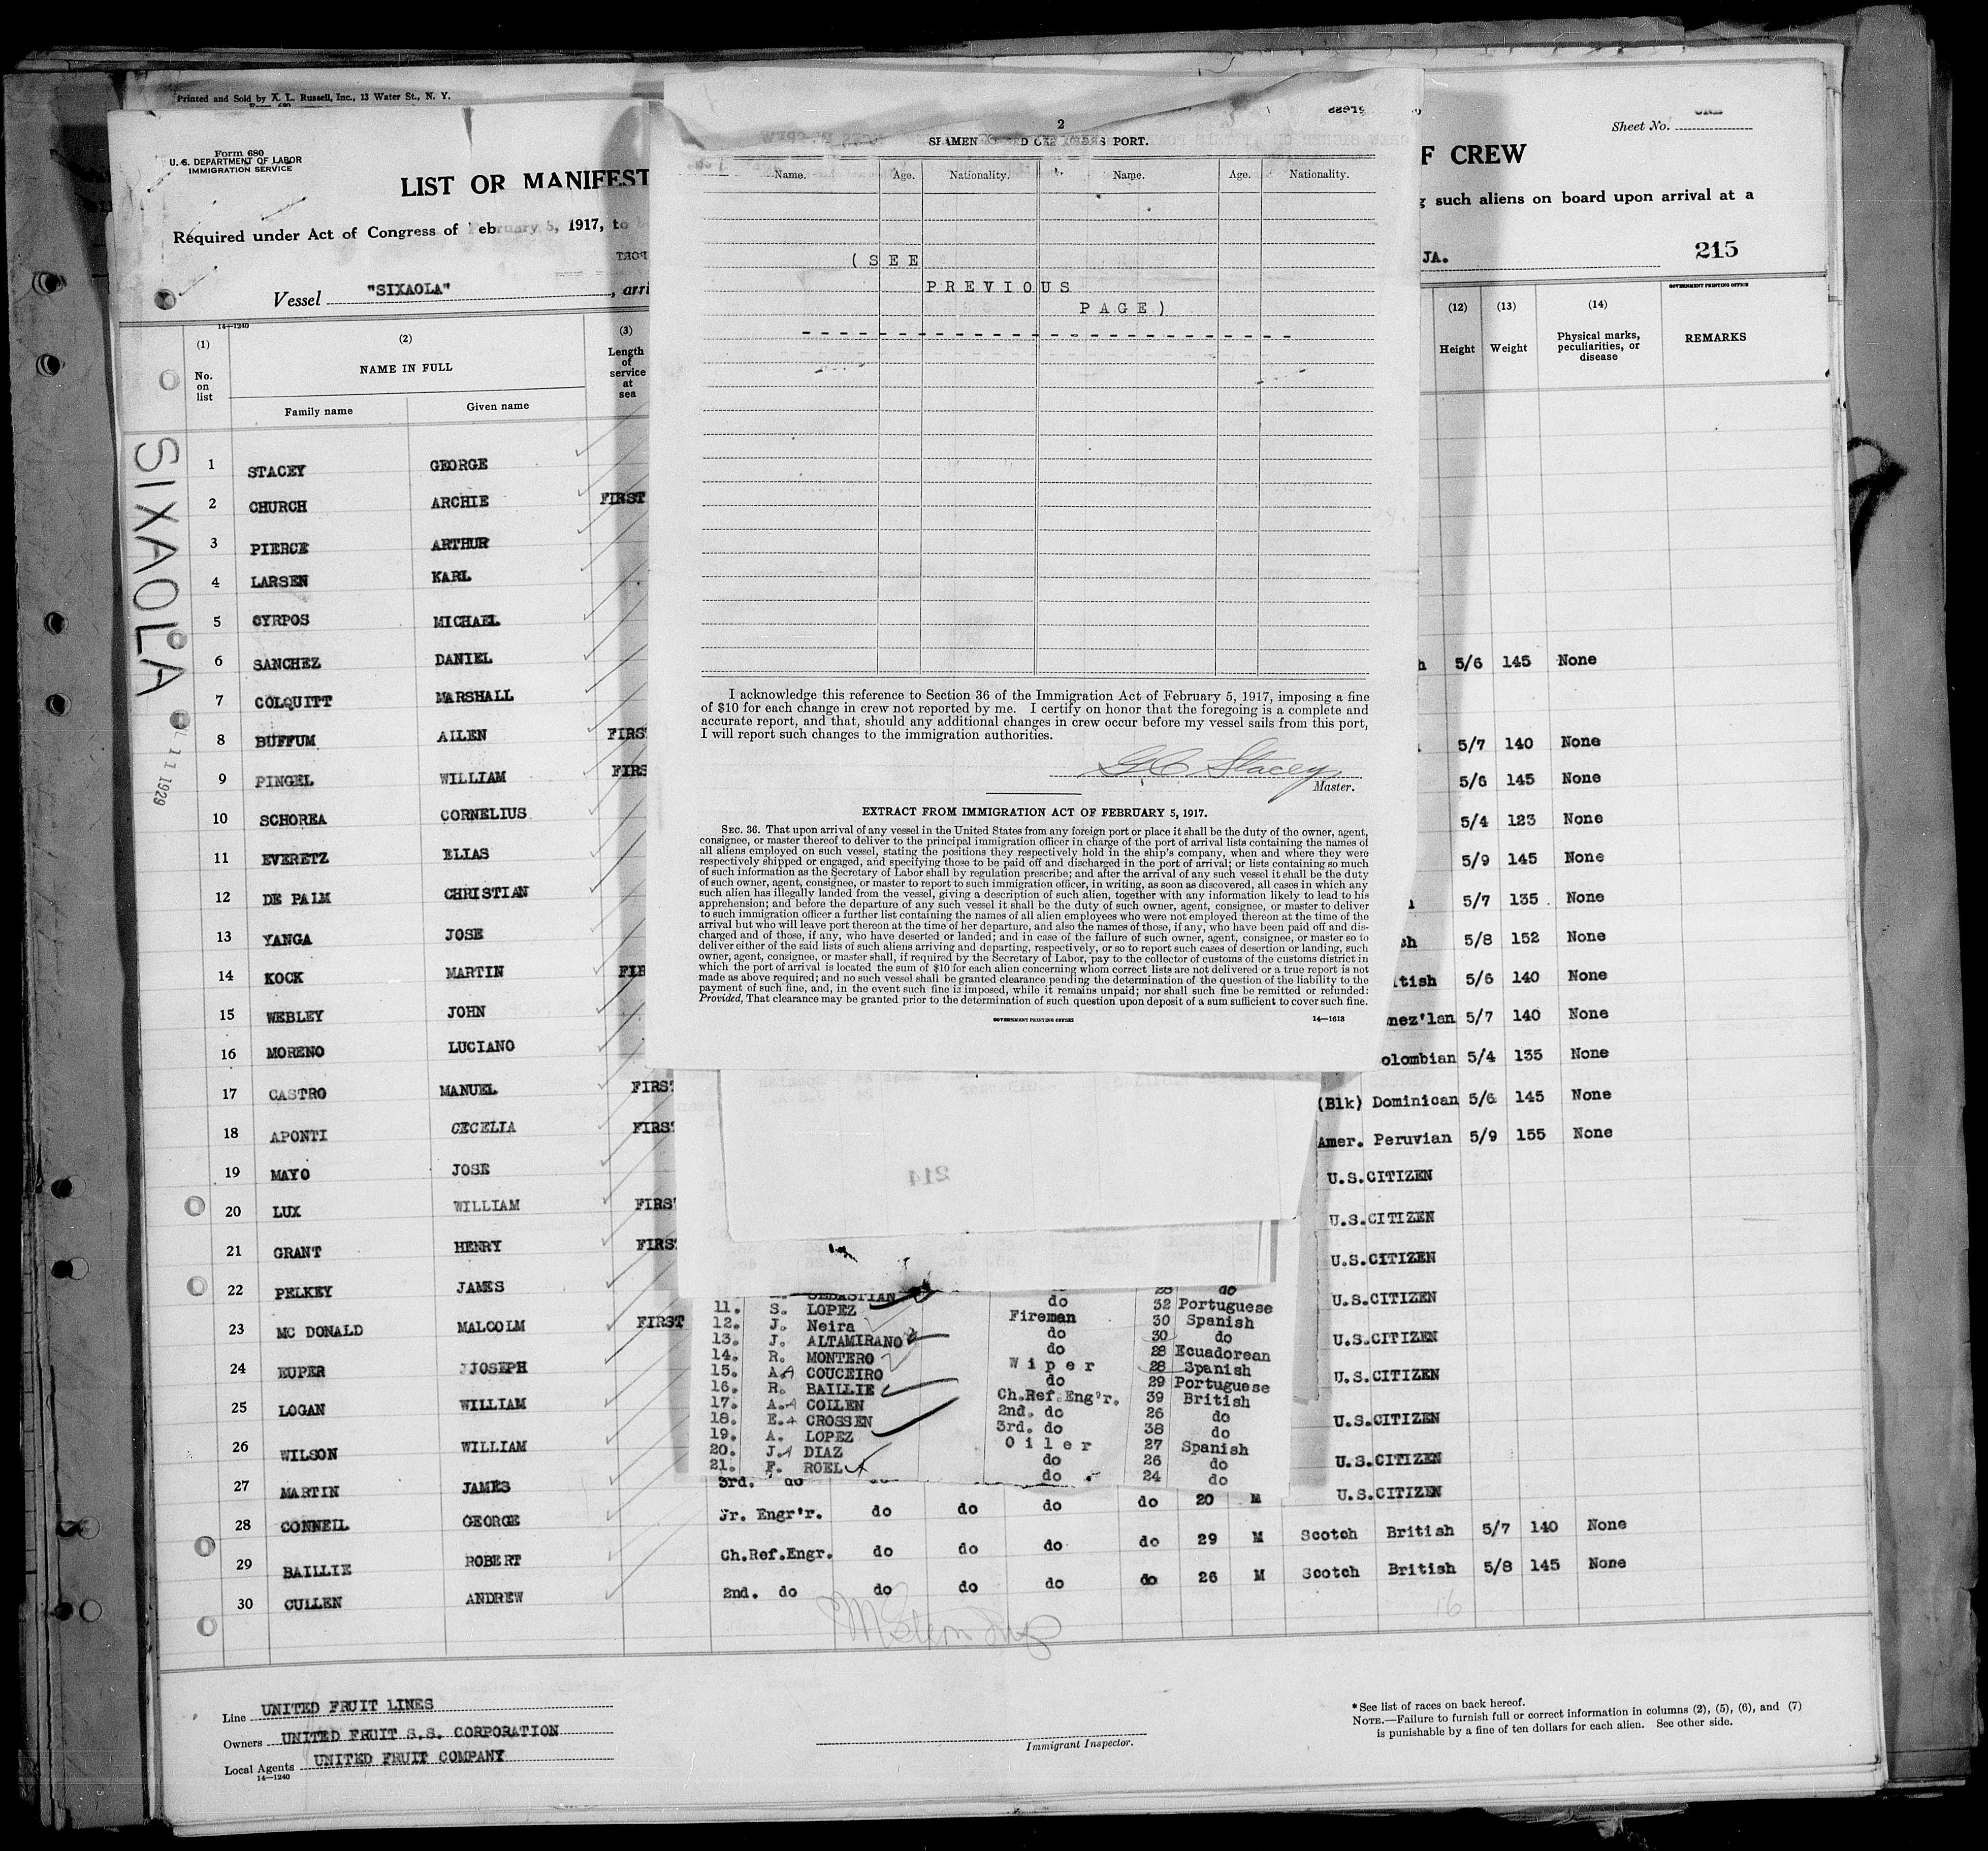 Printed and Sold by X. L. Russell, Inc., 13 Water St., N. Y.
Form 680
U. S. DEPARTMENT OF LABOR
IMMIGRATION SERVICE
LIST OR MANIFEST
Required under Act of Congress of February 5, 1917, to
Vessel "SIXAOLA", arri
14—1240
(1) (2) (3)
No. on list
NAME IN FULL
Length of service at sea
Family name Given name
SIXAOLA
11 1929
1 STACEY GEORGE
2 CHURCH ARCHIE FIRST
3 PIERCE ARTHUR
4 LARSEN KARL
5 CYRPOS MICHAEL
6 SANCHEZ DANIEL
7 COLQUITT MARSHALL
8 BUFFUM ALLEN FIRS
9 PINGEL WILLIAM FIRS
10 SCHOREA CORNELIUS
11 EVERETZ ELIAS
12 DE PALM CHRISTIAN
13 YANGA JOSE
14 KOCK MARTIN FIR
15 WEBLEY JOHN
16 MORENO LUCIANO
17 CASTRO MANUEL FIRST
18 APONTI CECELIA FIRS
19 MAYO JOSE
20 LUX WILLIAM FIRS
21 GRANT HENRY FIRS
22 PELKEY JAMES
23 MC DONALD MALCOLM FIRST
24 EUPER JJOSEPH
25 LOGAN WILLIAM
26 WILSON WILLIAM
27 MARTIN JAMES
28 CONNEIL GEORGE
29 BAILLIE ROBERT
30 CULLEN ANDREW
2
SEAMEN
PORT.
Name. Age. Nationality. Name. Age. Nationality.
(SEE
PREVIOUS
PAGE)
I acknowledge this reference to Section 36 of the Immigration Act of February 5, 1917, imposing a fine
of $10 for each change in crew not reported by me. I certify on honor that the foregoing is a complete and
accurate report, and that, should any additional changes in crew occur before my vessel sails from this port,
I will report such changes to the immigration authorities.
G C Stacey
Master.
EXTRACT FROM IMMIGRATION ACT OF FEBRUARY 5, 1917.
SEC. 36. That upon arrival of any vessel in the United States from any foreign port or place it shall be the duty of the owner, agent,
consignee, or master thereof to deliver to the principal immigration officer in charge of the port of arrival lists containing the names of
all aliens employed on such vessel, stating the positions they respectively hold in the ship's company, when and where they were
respectively shipped or engaged, and specifying those to be paid off and discharged in the port of arrival; or lists containing so much
of such information as the Secretary of Labor shall by regulation prescribe; and after the arrival of any such vessel it shall be the duty
of such owner, agent, consignee, or master to report to such immigration officer, in writing, as soon as discovered, all cases in which any
such alien has illegally landed from the vessel, giving a description of such alien, together with any information likely to lead to his
apprehension; and before the departure of any such vessel it shall be the duty of such owner, agent, consignee, or master to deliver
to such immigration officer a further list containing the names of all alien employees who were not employed thereon at the time of the
arrival but who will leave port thereon at the time of her departure, and also the names of those, if any, who have been paid off and dis-
charged and of those, if any, who have deserted or landed; and in case of the failure of such owner, agent, consignee, or master so to
deliver either of the said lists of such aliens arriving and departing, respectively, or so to report such cases of desertion or landing, such
owner, agent, consignee, or master shall, if required by the Secretary of Labor, pay to the collector of customs of the customs district in
which the port of arrival is located the sum of $10 for each alien concerning whom correct lists are not delivered or a true report is not
made as above required; and no such vessel shall be granted clearance pending the determination of the question of the liability to the
payment of such fine, and, in the event such fine is imposed, while it remains unpaid; nor shall such fine be remitted or refunded:
Provided, That clearance may be granted prior to the determination of such question upon deposit of a sum sufficient to cover such fine.
GOVERNMENT PRINTING OFFICE 14—1613
214
SEBASTIAN do 28 do
11. S. LOPEZ do 32 Portuguese
12. J. Neira Fireman 30 Spanish
13. J. ALTAMIRANO do 30 do
14. R. MONTERO do 28 Ecuadorean
15. A. COUCEIRO Wiper 28 Spanish
16. R. BAILLIE do 29 Portuguese
17. A. COLLEN Ch.Ref.Eng'r. 39 British
18. E. CROSSEN 2nd. do 26 do
19. A. LOPEZ 3rd. do 38 do
20. J. DIAZ Oiler 27 Spanish
21. F. ROEL do 26 do
do 24 do
3rd. do
Jr. Engr'r. do do do do 20 M
Ch.Ref.Engr. do do do do 29 M Scotch British 5/7 140 None
2nd. do do do do do 26 M Scotch British 5/8 145 None
16
Sheet No.
F CREW
g such aliens on board upon arrival at a
JA.
215
GOVERNMENT PRINTING OFFICE
(12) (13) (14)
Height Weight Physical marks, peculiarities, or disease REMARKS
h 5/6 145 None
5/7 140 None
5/6 145 None
5/4 123 None
5/9 145 None
5/7 135 None
sh 5/8 152 None
itish 5/6 140 None
nez'lan 5/7 140 None
olombian 5/4 135 None
(Blk) Dominican 5/6 145 None
Amer. Peruvian 5/9 155 None
U.S.CITIZEN
U.S.CITIZEN
U.S.CITIZEN
U.S.CITIZEN
U.S.CITIZEN
U.S.CITIZEN
U.S.CITIZEN
U.S.CITIZEN
U.S.CITIZEN
Line UNITED FRUIT LINES
Owners UNITED FRUIT S.S. CORPORATION
Local Agents UNITED FRUIT COMPANY
14—1240
Immigrant Inspector.
*See list of races on back hereof.
NOTE.—Failure to furnish full or correct information in columns (2), (5), (6), and (7)
is punishable by a fine of ten dollars for each alien. See other side.